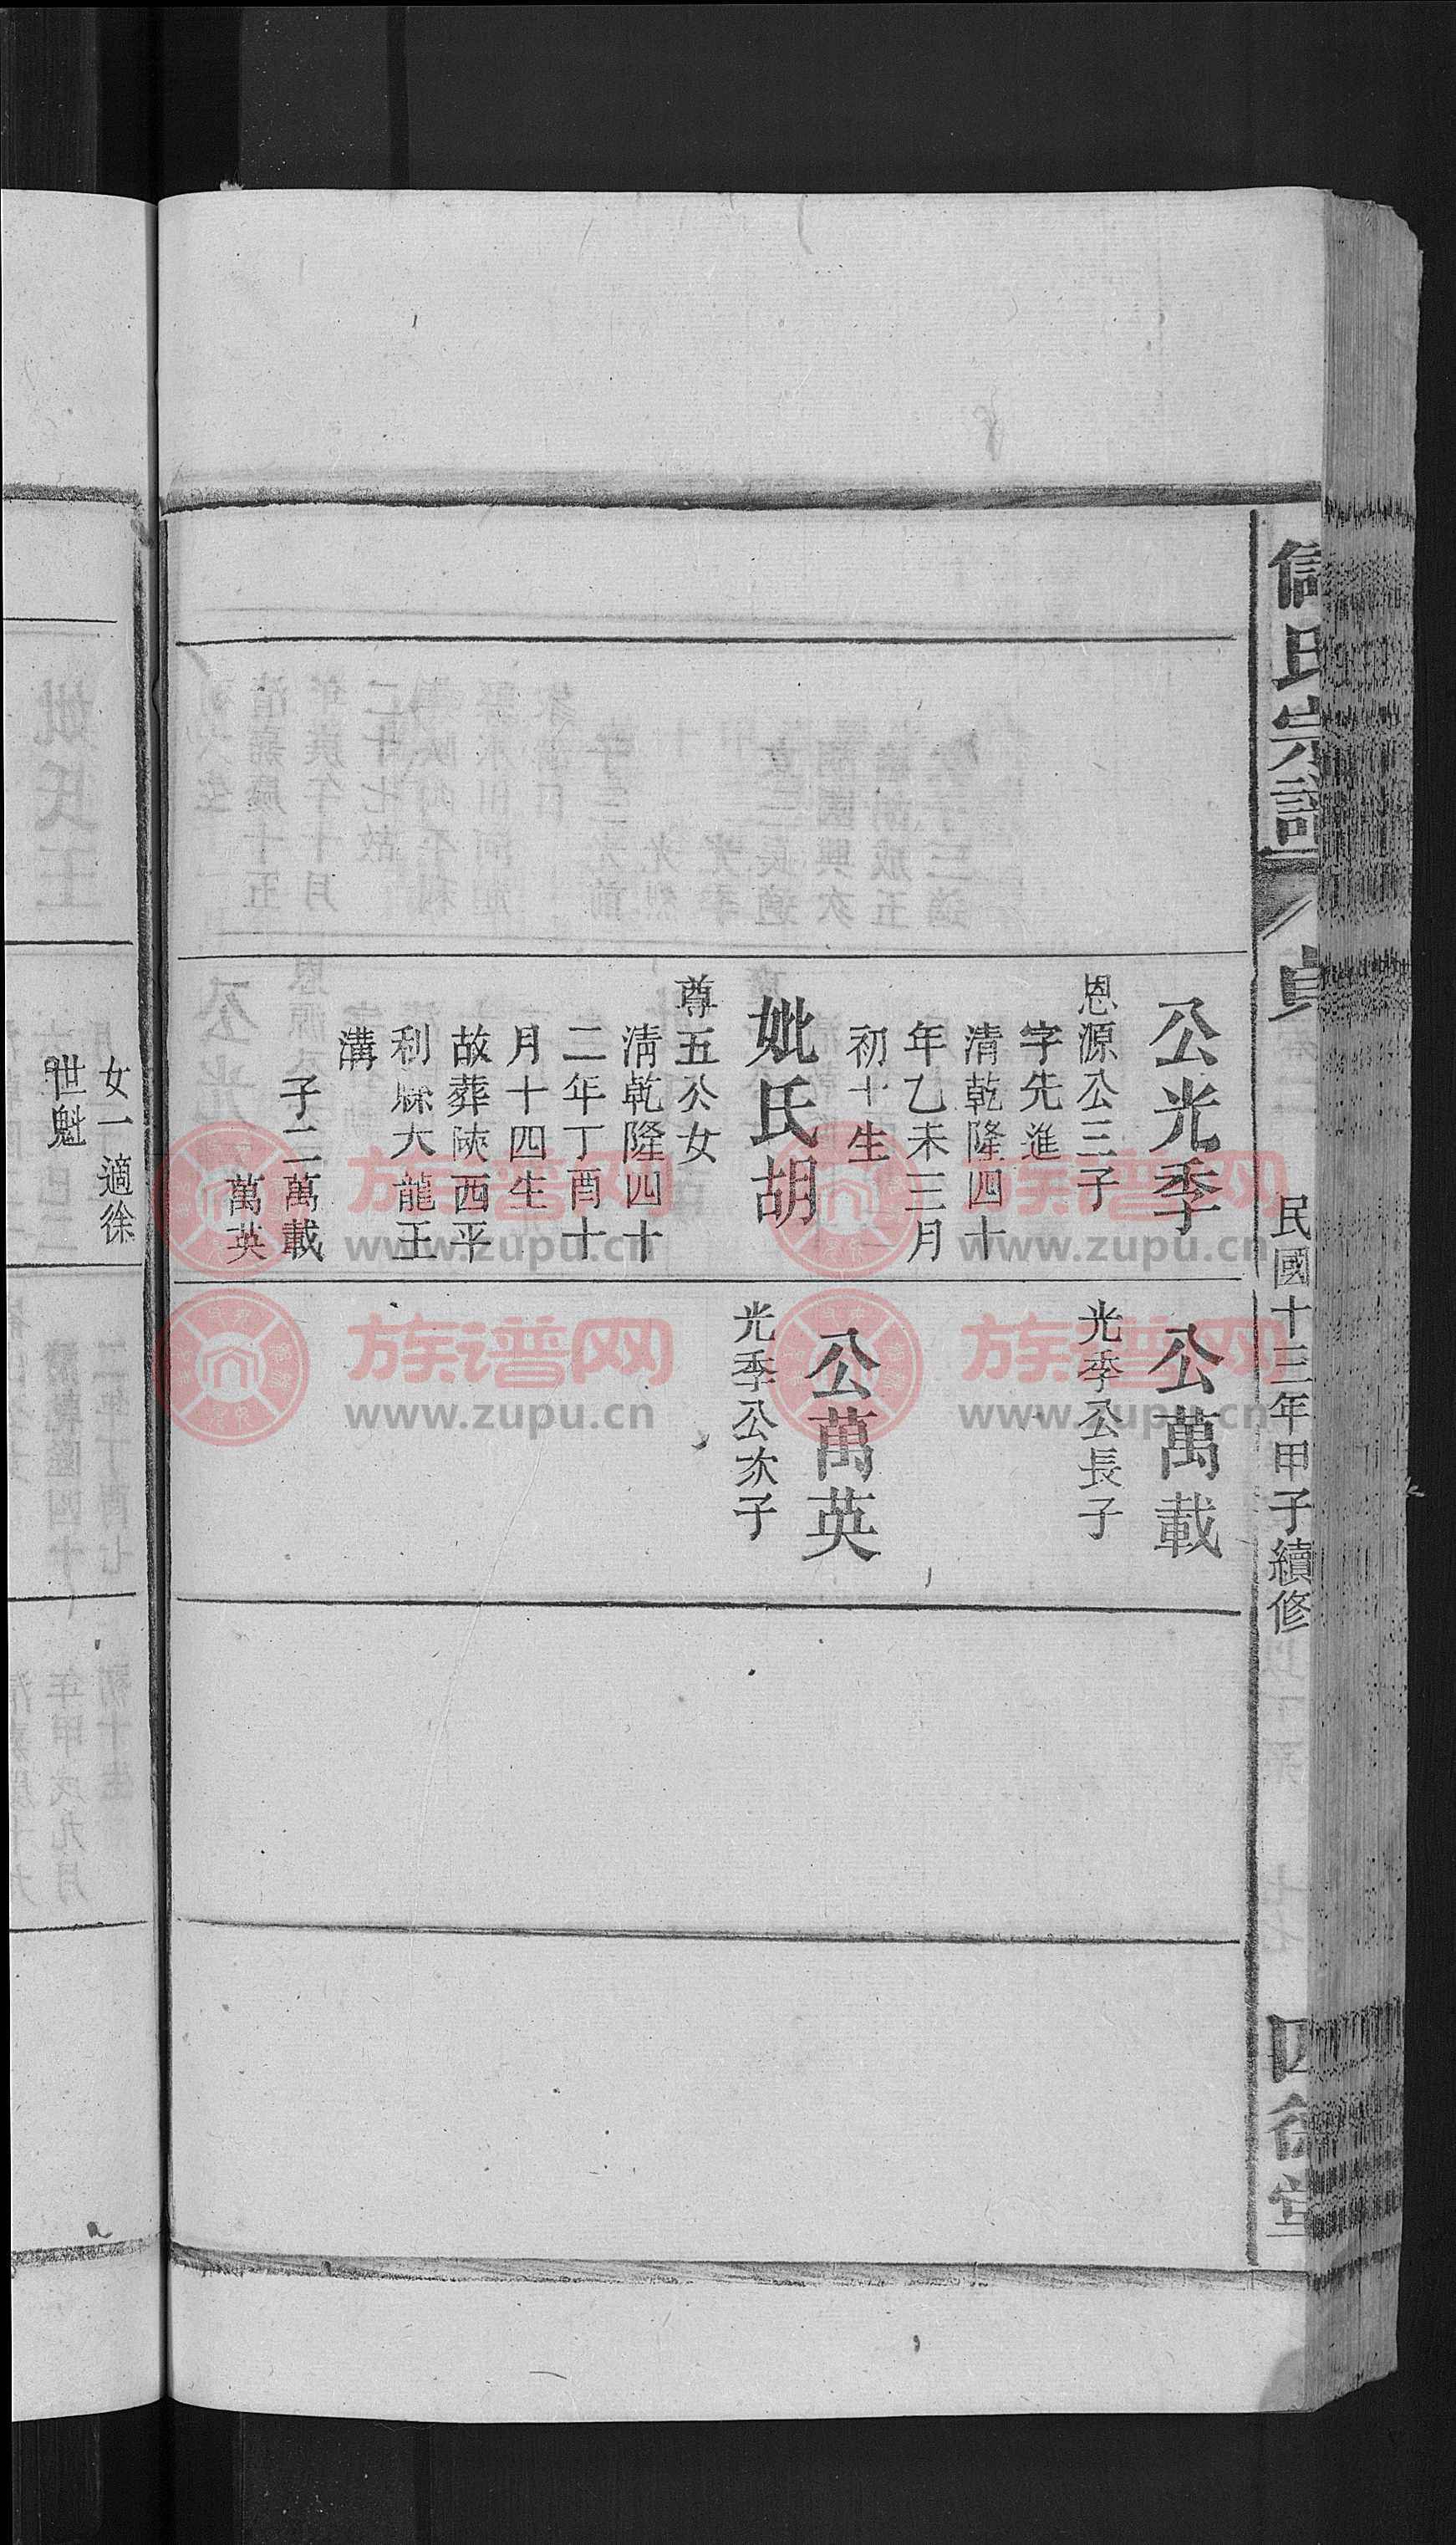 氏宗譜
貞
民國十三年甲子續修
四 堂
公光季
恩源公三子
字先進
清乾隆四十
年乙未三月
初十生
妣氏胡
尊五公女
清乾隆四十
二年丁酉十
月十四生
故葬陝西平
利縣大龍王
溝
子二萬載
萬英
公萬載
光季公長子
公萬英
光季公次子
女一適徐
世魁
族谱网
www.zupu.cn
族谱网
www.zupu.cn
族谱网
www.zupu.cn
族谱网
www.zupu.cn